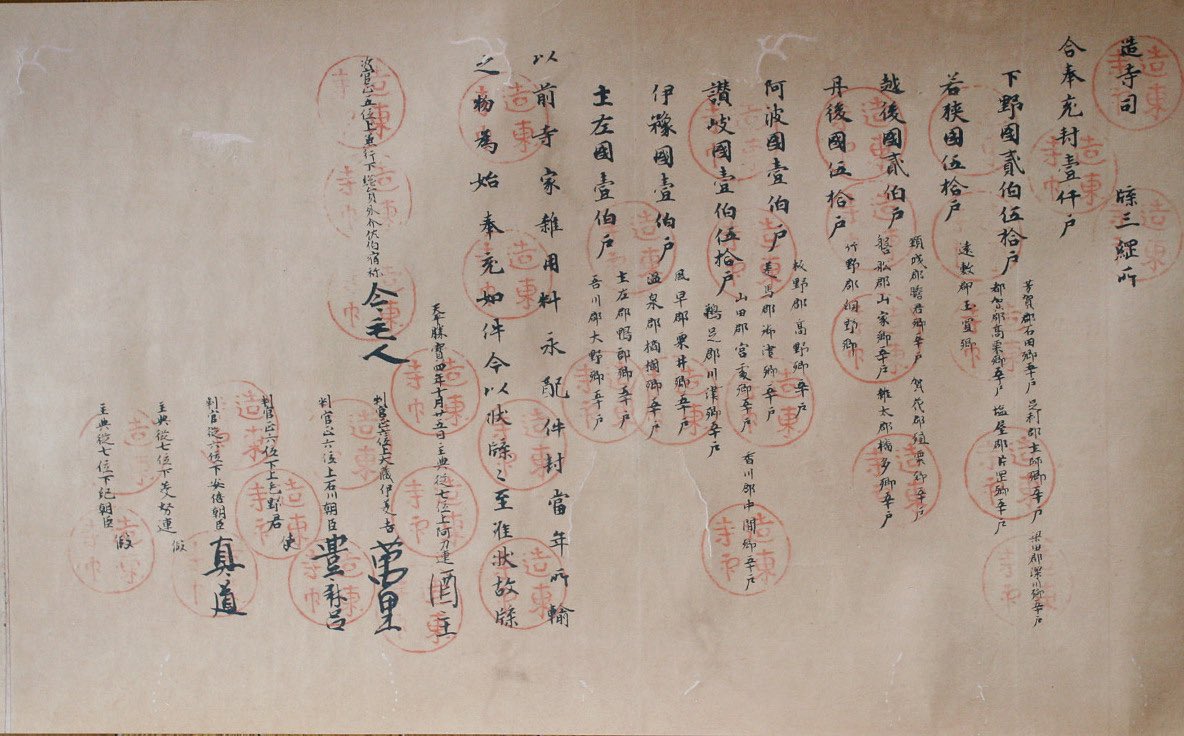 造寺司 牒三綱所
合奉充封壹仟戸
下野國貳伯伍拾戸
芳賀郡石田郷五十戸 足利郡土師郷五十戸 梁田郡深川郷五十戸
都賀郡高栗郷五十戸 塩屋郡片岡郷五十戸
若狹國伍拾戸
遠敷郡玉置郷
越後國貳伯戸
頸城郡膽君郷五十戸 賀茂郡殖栗郷五十戸
磐船郡山家郷五十戸 雜太郡橘多郷五十戸
丹後國伍拾戸
竹野郡網野郷
阿波國壹伯戸
板野郡高野郷五十戸
郡 郷五十戸
讃岐國壹伯伍拾戸
山田郡宮 郷五十戸 香川郡中間郷五十戸
鵜足郡川津郷五十戸
伊豫國壹伯戸
風早郡粟井郷五十戸
温泉郡橘樹郷五十戸
土左國壹伯戸
土左郡鴨部郷五十戸
吾川郡大野郷五十戸
以前寺家雜用料永配件封當年所輸
之物為始奉充如件今以状牒々至准状故牒
天平勝寶四年十月廿五日主典從七位上阿刀連酒主
次官正五位上兼行下総員外介佐伯宿祢今毛人
判官正六位上大藏伊美吉萬里
判官正六位上石川朝臣豊麻呂
判官正六位下上毛野君
判官從六位下安倍朝臣真道
主典從七位下 努連 假
主典從七位下紀朝臣 假
造東寺印